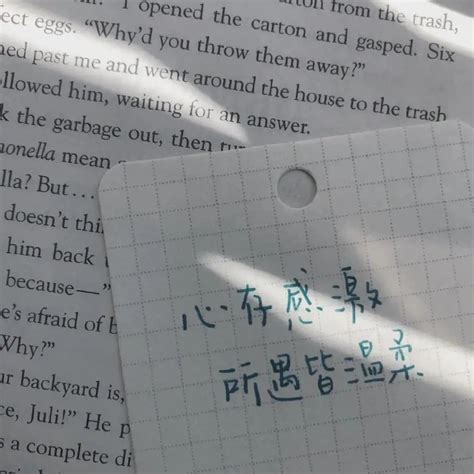 I opened the carton and gasped. Six
from the trash,
ect eggs. "Why'd you throw them away?"
ed past me and went around the house to the trash
llowed him, waiting for an answer.
k the garbage out, then
onella mean
lla? But...
doesn't
him back
because—"
e's afraid of
Why?"
ur backyard is,
ce, Juli!" He
s a complete
心存感激
所遇皆溫柔